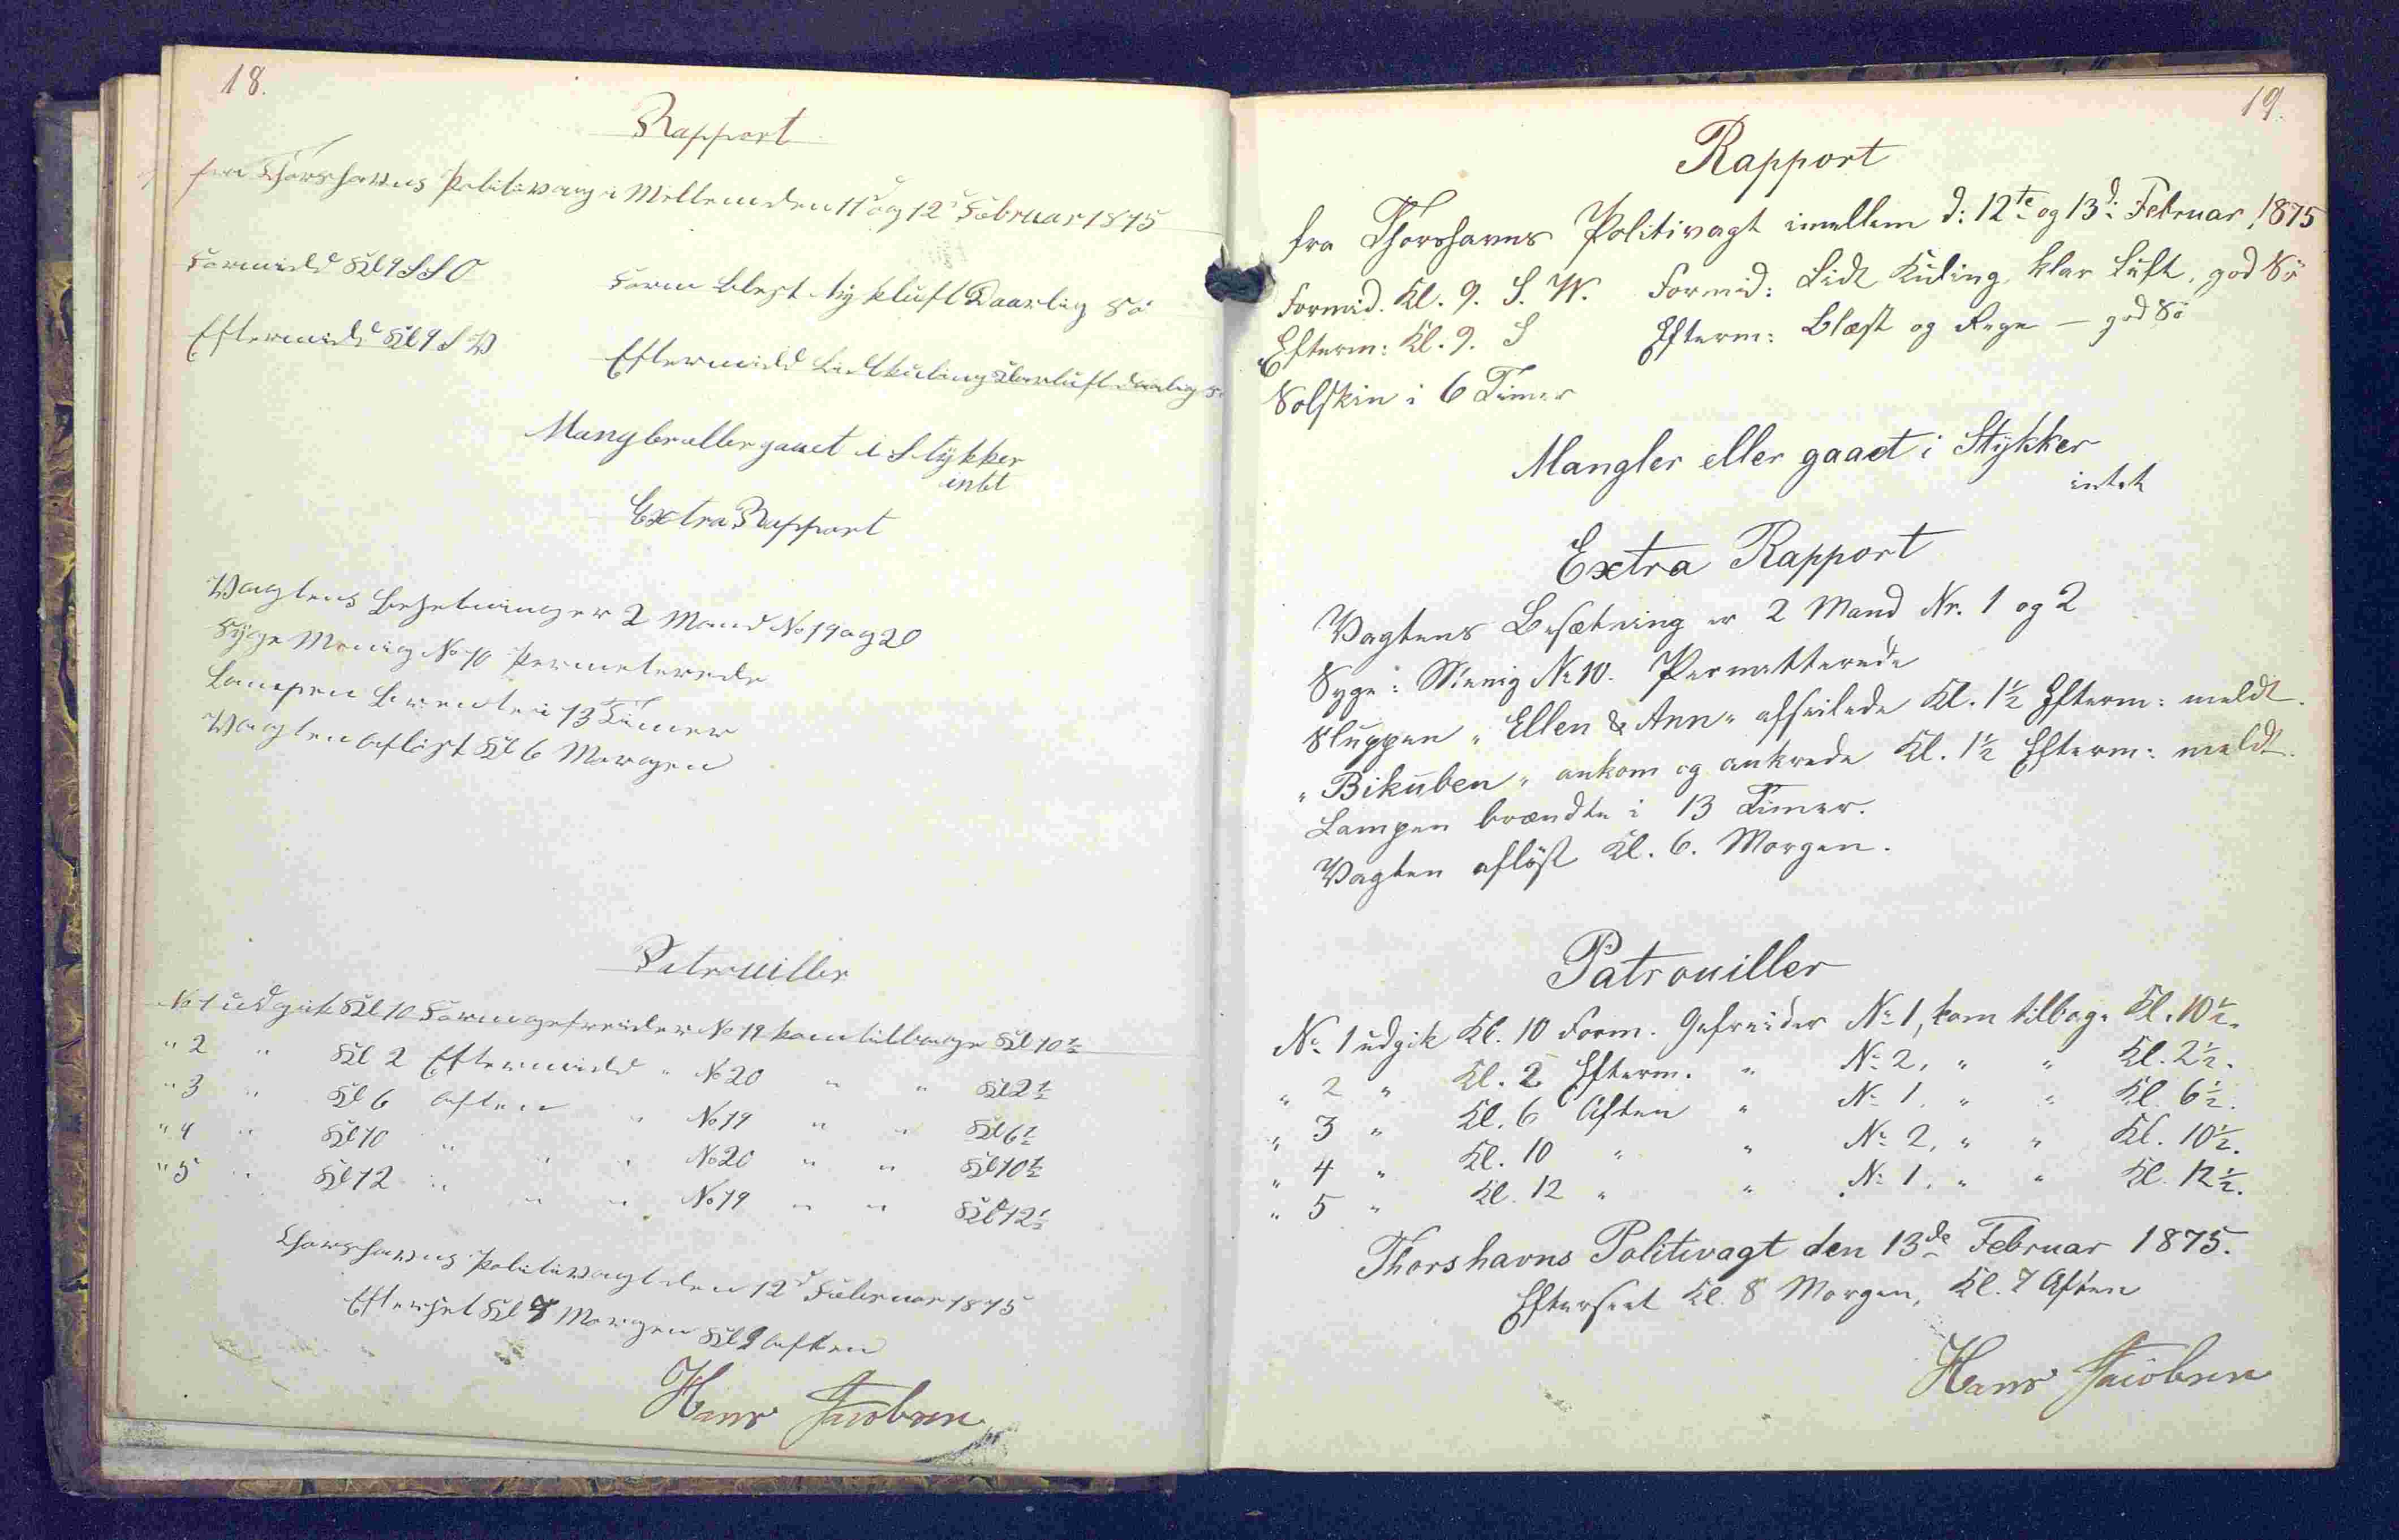 18.
Rapport
fra Thorshavns Politivagt Mellem den 11d og 12d Februar 1875
Formidd Kl 9 S S O Form blest tyk luft Daarlig Sö
Eftermidd Kl 9 S V Eftermidd Lidt kuling klar luft daarlig S
Mangler eller gaaet i Stÿkker
intet
Extra Rapport
Vagtens Besetninger 2 Mand No 19 og 20
Sÿge Menig No 10 Permeterede
Lampen Brendte i 13 Timer
Vagten aflöst Kl 6 Morgen
Patrouiller
No 1 udgik Kl 10 Form gefreider No 19 kom tilbage Kl 10 1/2
" 2 " Kl 2 Eftermidd " No 20 " " Kl 2 1/2
" 3 " Kl 6 Aften " No 19 " " Kl 6 1/2
" 4 " Kl 10 " " " No 20 " " Kl 10 1/2
" 5 " Kl 12 " " " No 19 " " Kl 12 1/2
Thorshavns Politivagt den 12d Februar 1875
Efterset Kl 7 Morgen Kl 9 Aften
Hans Jacobsen
19.
Rapport
fra Thorshavns Politivagt imellem d: 12te og 13d: Februar 1875
Formid. Kl. 9. S. W. Formid: Lidt Kuling, klar Luft, god Sö
Efterm: Kl. 9. S Efterm: Blæst og Regn — god Sö
Solskin i 6 Timer
Mangler eller gaaet i Stykker
intet
Extra Rapport
Vagtens Besætning er 2 Mand Nr. 1 og 2
Syge: Menig No 10. Permitterede
Sluppen "Ellen & Ann" afseilede Kl. 1 1/2 Efterm: meldt.
"Bikuben" ankom og ankrede Kl. 1 1/2 Efterm: meldt.
Lampen brændte i 13 Timer.
Vagten aflöst Kl. 6. Morgen.
Patrouiller
No 1 udgik Kl. 10 Form. Gefreider No 1, kom tilbage Kl. 10 1/2.
" 2 " Kl. 2 Efterm. " No 2, " " Kl. 2 1/2.
" 3 " Kl. 6 Aften " No 1, " " Kl. 6 1/2.
" 4 " Kl. 10 " " No 2, " " Kl. 10 1/2.
" 5 " Kl. 12 " " No 1, " " Kl. 12 1/2.
Thorshavns Politivagt den 13de Februar 1875.
Efterseet Kl. 8 Morgen, Kl. 7 Aften
Hans Jacobsen